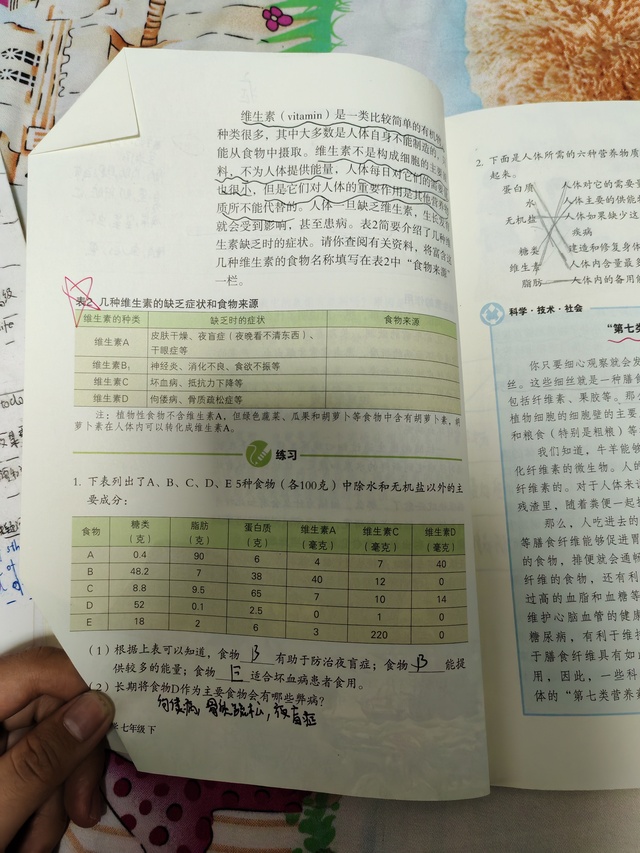 维生素（vitamin）是一类比较简单的有机物
种类很多，其中大多数是人体自身不能制造的，
能从食物中摄取。维生素不是构成细胞的主要
料，不为人体提供能量，人体每日对它们的需要
也很小，但是它们对人体的重要作用是其他营养
质所不能代替的。人体一旦缺乏维生素，生长发
就会受到影响，甚至患病。表2简要介绍了几种维
生素缺乏时的症状。请你查阅有关资料，将富含这
几种维生素的食物名称填写在表2中“食物来源”
一栏。
表2 几种维生素的缺乏症状和食物来源
维生素的种类 缺乏时的症状 食物来源
维生素A 皮肤干燥、夜盲症（夜晚看不清东西）、
干眼症等
维生素B₁ 神经炎、消化不良、食欲不振等
维生素C 坏血病、抵抗力下降等
维生素D 佝偻病、骨质疏松症等
注：植物性食物不含维生素A，但绿色蔬菜、瓜果和胡萝卜等食物中含有胡萝卜素，胡
萝卜素在人体内可以转化成维生素A。
练习
1. 下表列出了A、B、C、D、E 5种食物（各100克）中除水和无机盐以外的主
要成分：
食物 糖类（克） 脂肪（克） 蛋白质（克） 维生素A（毫克） 维生素C（毫克） 维生素D（毫克）
A 0.4 90 6 4 7 40
B 48.2 7 38 40 12 0
C 8.8 9.5 65 7 10 14
D 52 0.1 2.5 0 1 0
E 18 2 6 3 220 0
（1）根据上表可以知道，食物 B 有助于防治夜盲症；食物 B 能提
供较多的能量；食物 E 适合坏血病患者食用。
（2）长期将食物D作为主要食物会有哪些弊病？
佝偻病，骨质疏松，夜盲症
学 七年级 下
2. 下面是人体所需的六种营养物质
起来。
蛋白质 人体对它的需要量
水 人体主要的供能物
无机盐 人体如果缺少这
疾病
糖类 建造和修复身体
维生素 人体内含量最多
脂肪 人体内的备用能
科学·技术·社会
“第七类
你只要细心观察就会发
丝。这些细丝就是一种膳食
包括纤维素、果胶等。那么
植物细胞的细胞壁的主要
和粮食（特别是粗粮）等
我们知道，牛羊能够
化纤维素的微生物。人的
纤维素的。对于人体未消
残渣里，随着粪便一起排
那么，人吃进去的
等膳食纤维能够促进胃
的食物，排便就会通畅
纤维的食物，还有利
过高的血脂和血糖等
维护心脑血管的健康
糖尿病，有利于维护
于膳食纤维具有如此
用，因此，一些科
体的“第七类营养素